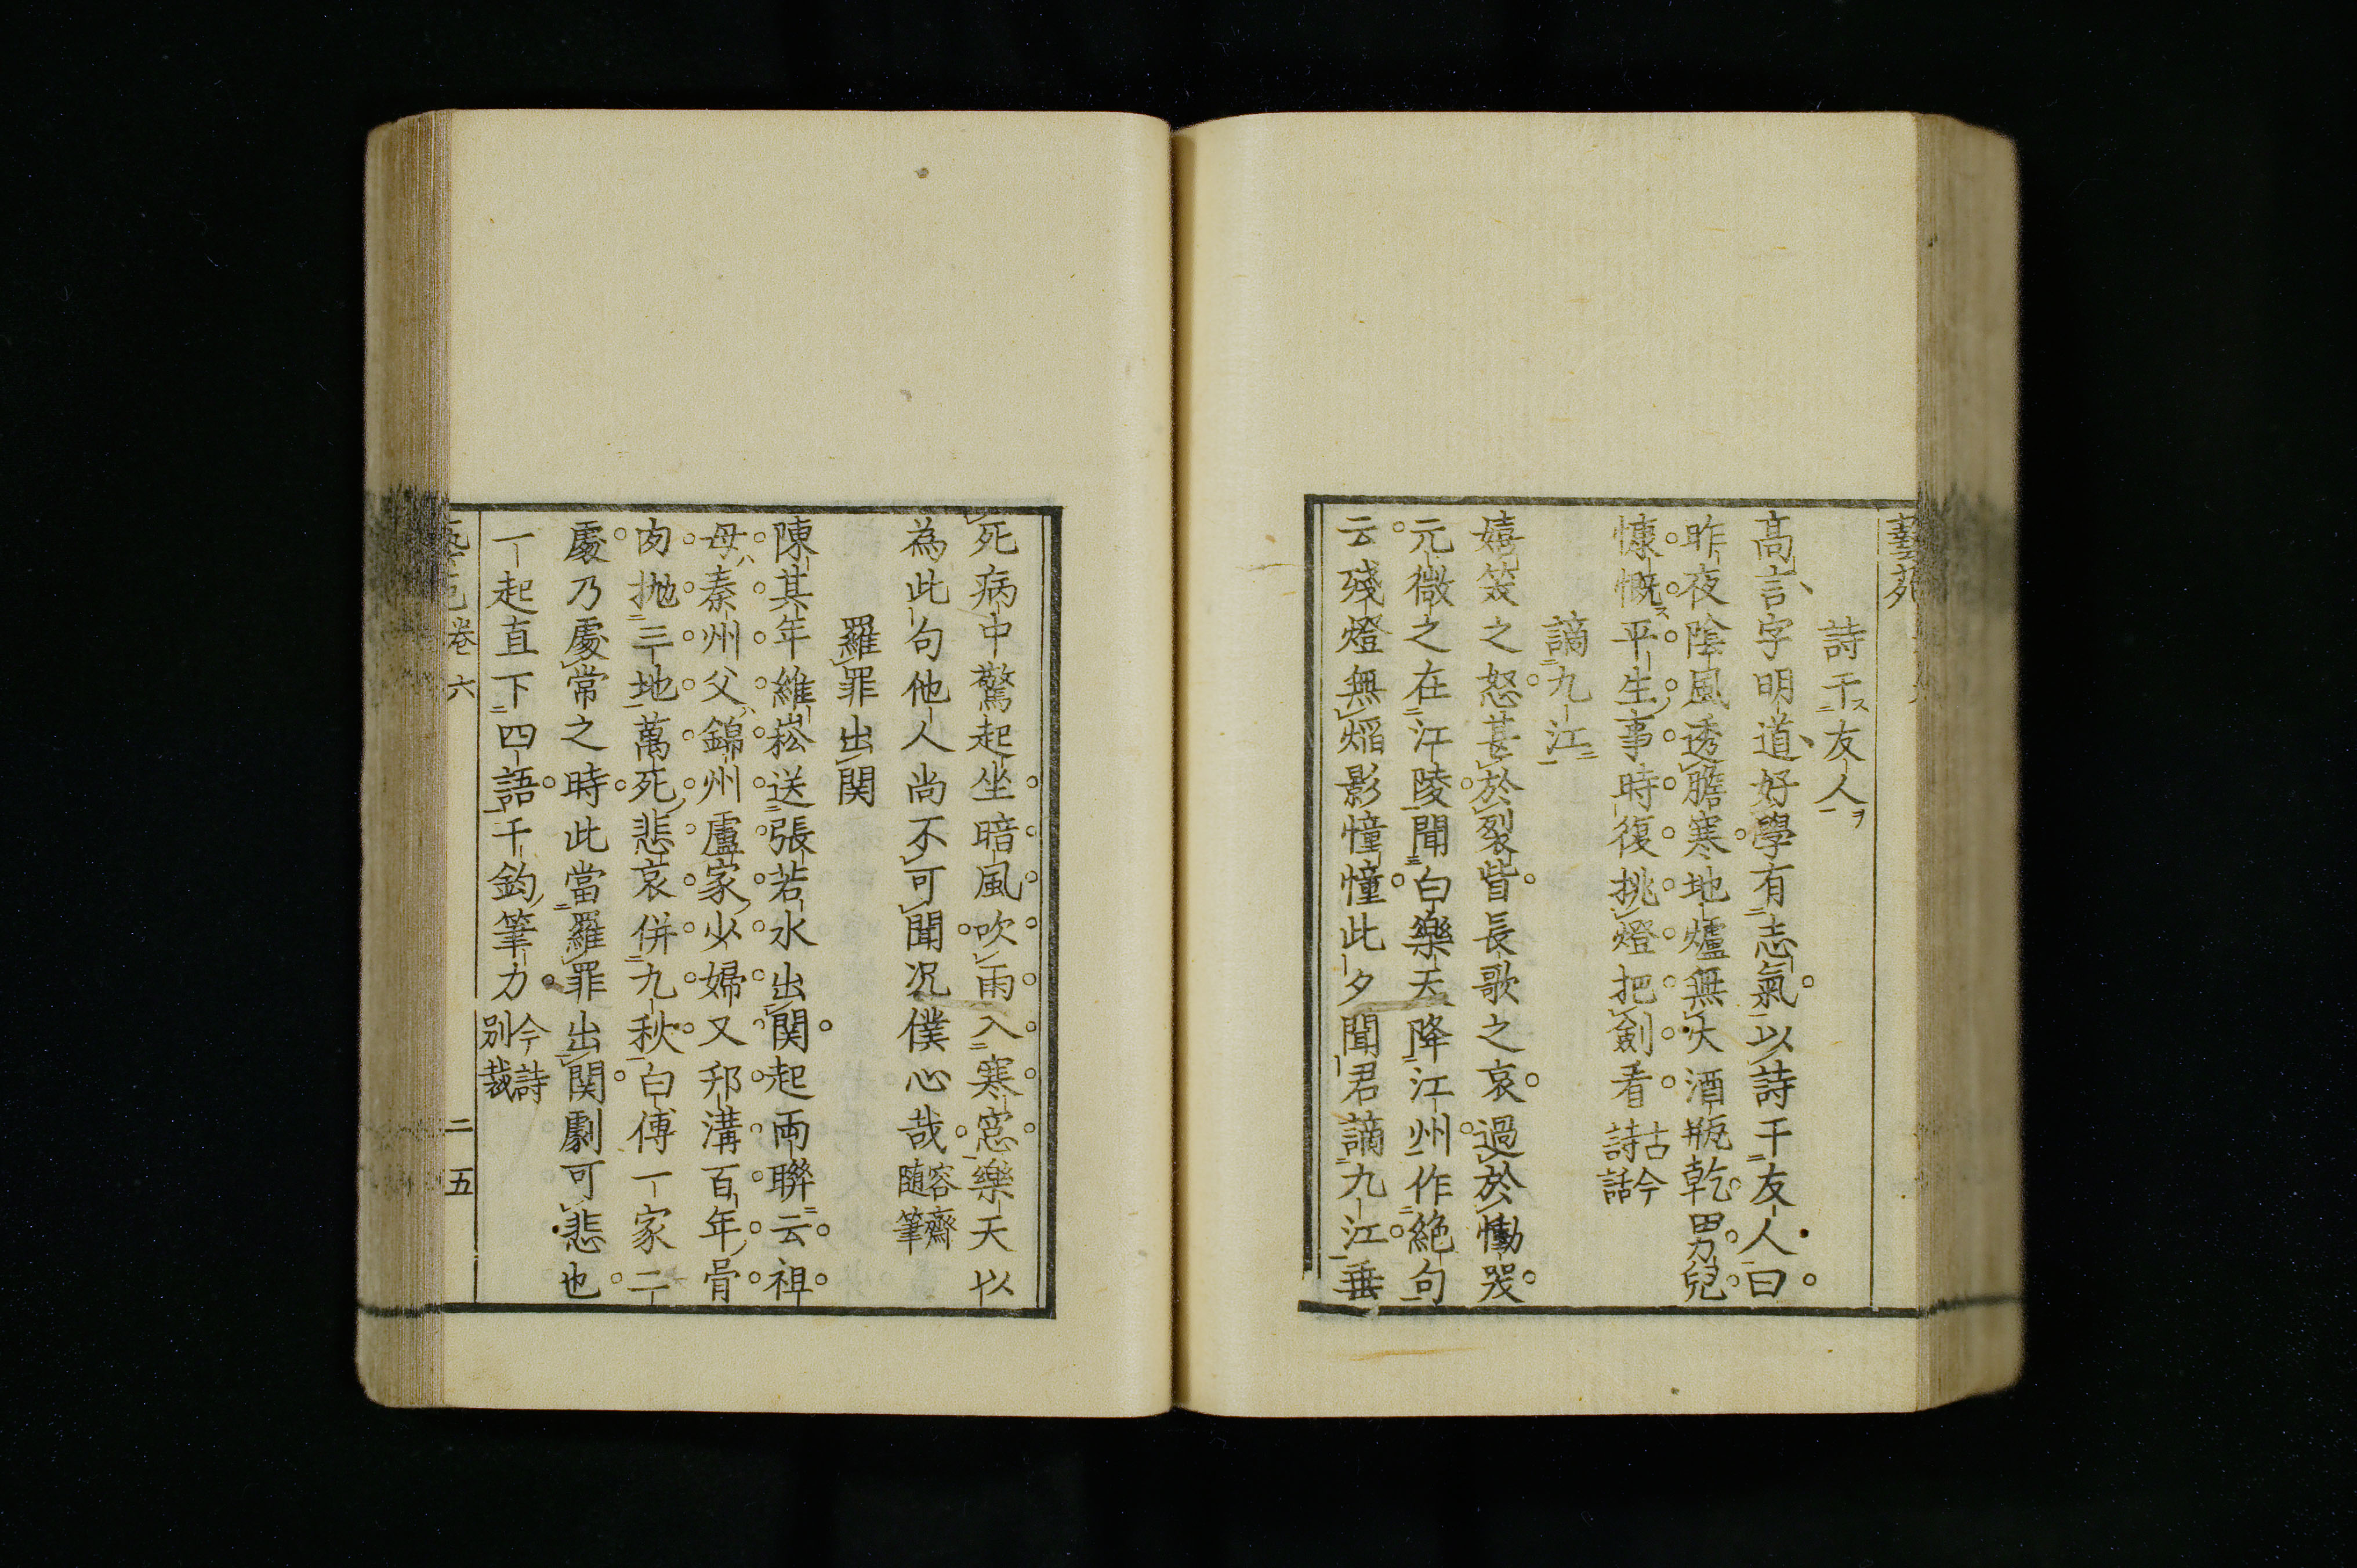 藝苑
詩干友人
高言字明道好學有志氣以詩干友人曰
昨夜陰風透膽寒地爐無火酒瓶乾男兒
慷慨平生事時復挑燈把劍看古今詩話
謫九江
嬉笑之怒甚於裂眥長歌之哀過於慟哭
元微之在江陵聞白樂天降江州作絶句
云殘燈無焰影憧憧此夕聞君謫九江垂
死病中驚起坐暗風吹雨入寒窓樂天以
為此句他人尚不可聞况僕心哉容齋随筆
羅罪出関
陳其年維崧送張若水出関起両聯云祖
母秦州父錦州盧家少婦又邗溝百年骨
肉抛三地萬死悲哀併九秋白傅一家二
處乃處常之時此當羅罪出関劇可悲也
一起直下四語千鈞筆力今詩別裁
卷六
二五